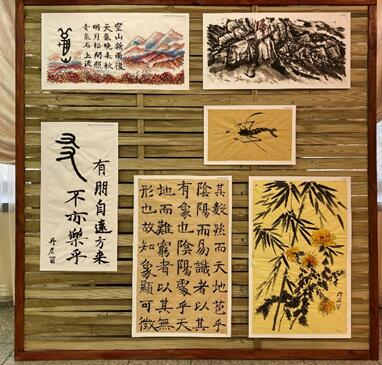 空山新雨後
天氣晚来秋
明月松間照
清泉石上流
有朋自遠方来
不亦樂乎
其數然而天地苞乎
陰陽而易識者以其
有象也陰陽處乎天
地而難窮者以其無
形也故知象顯可徵